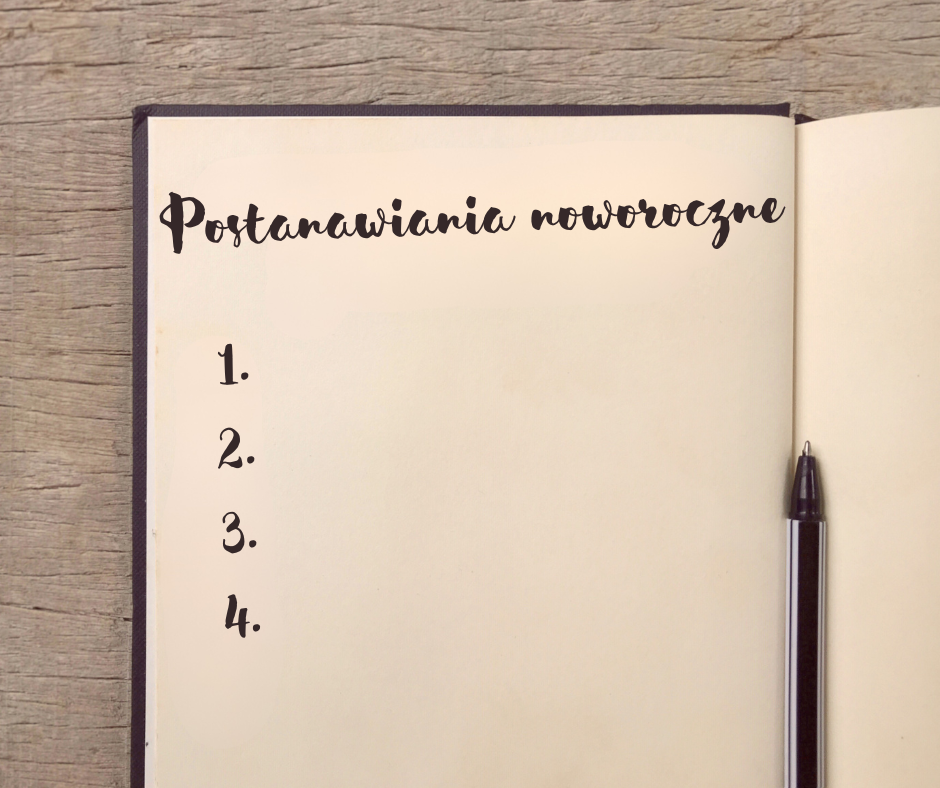 Postanawiania noworoczne
1.
2.
3.
4.